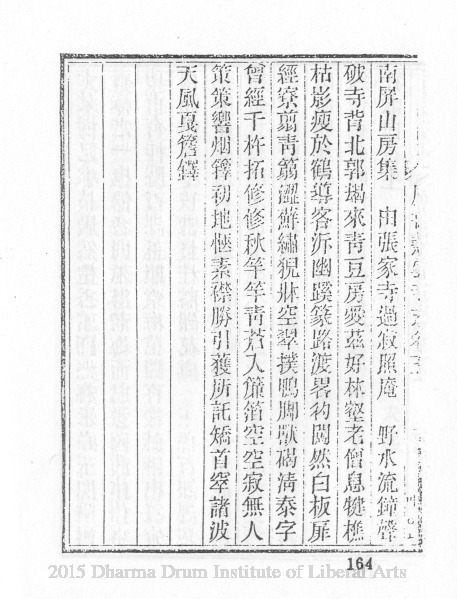 南屏山房集　由張家寺過寂照庵　野水流鐘聲
破寺背北郭朅來青豆房愛茲好林壑老僧息犍椎
枯影瘦於鶴導客泝幽蹊篆路渡畧彴闃然白板扉
經寮翦青蒻澀蘚繡猊牀空翠撲鴨腳獸碣清泰字
曾經千杵拓修修秋竿竿青蒼入簾箔空空寂無人
策策響烟籜初地極素襟勝引獲所託矯首窣諸波
天風戛簷鐸
164
2015 Dharma Drum Institute of Liberal Arts